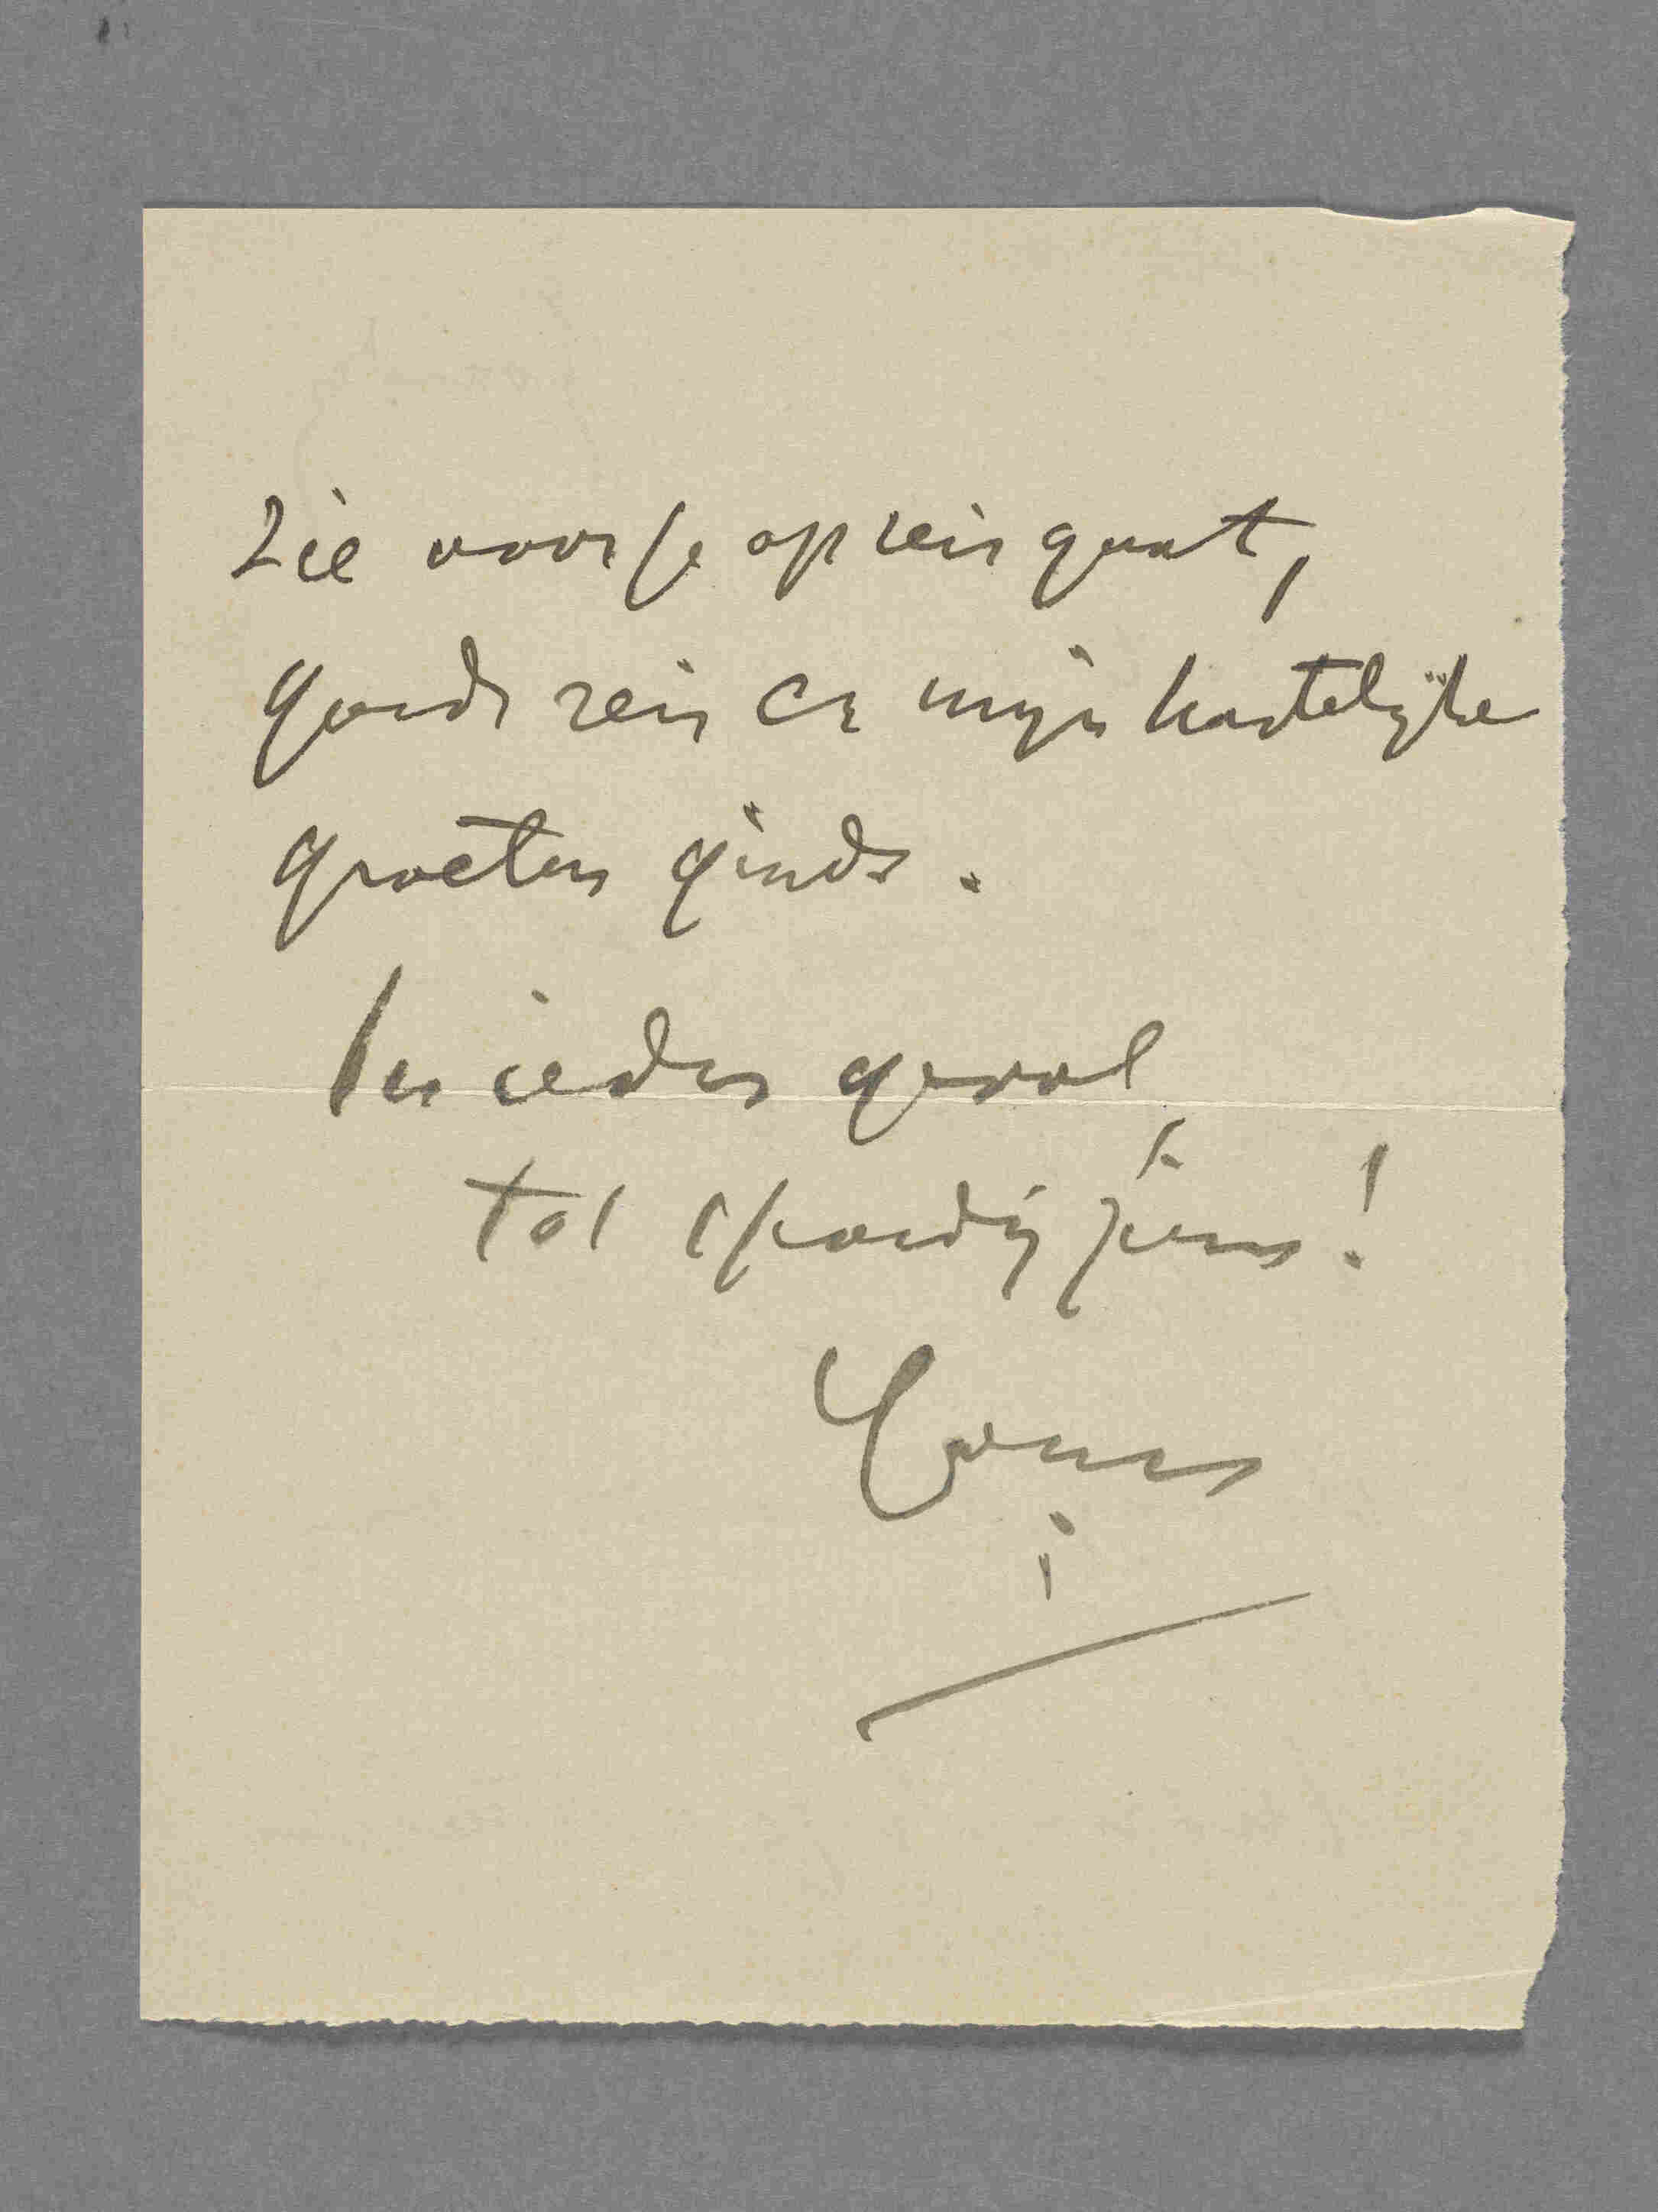 zie voor je op reis gaat,
goede reis en mijn hartelijke
groeten ginds.
In ieder geval
tot spoedig ziens!